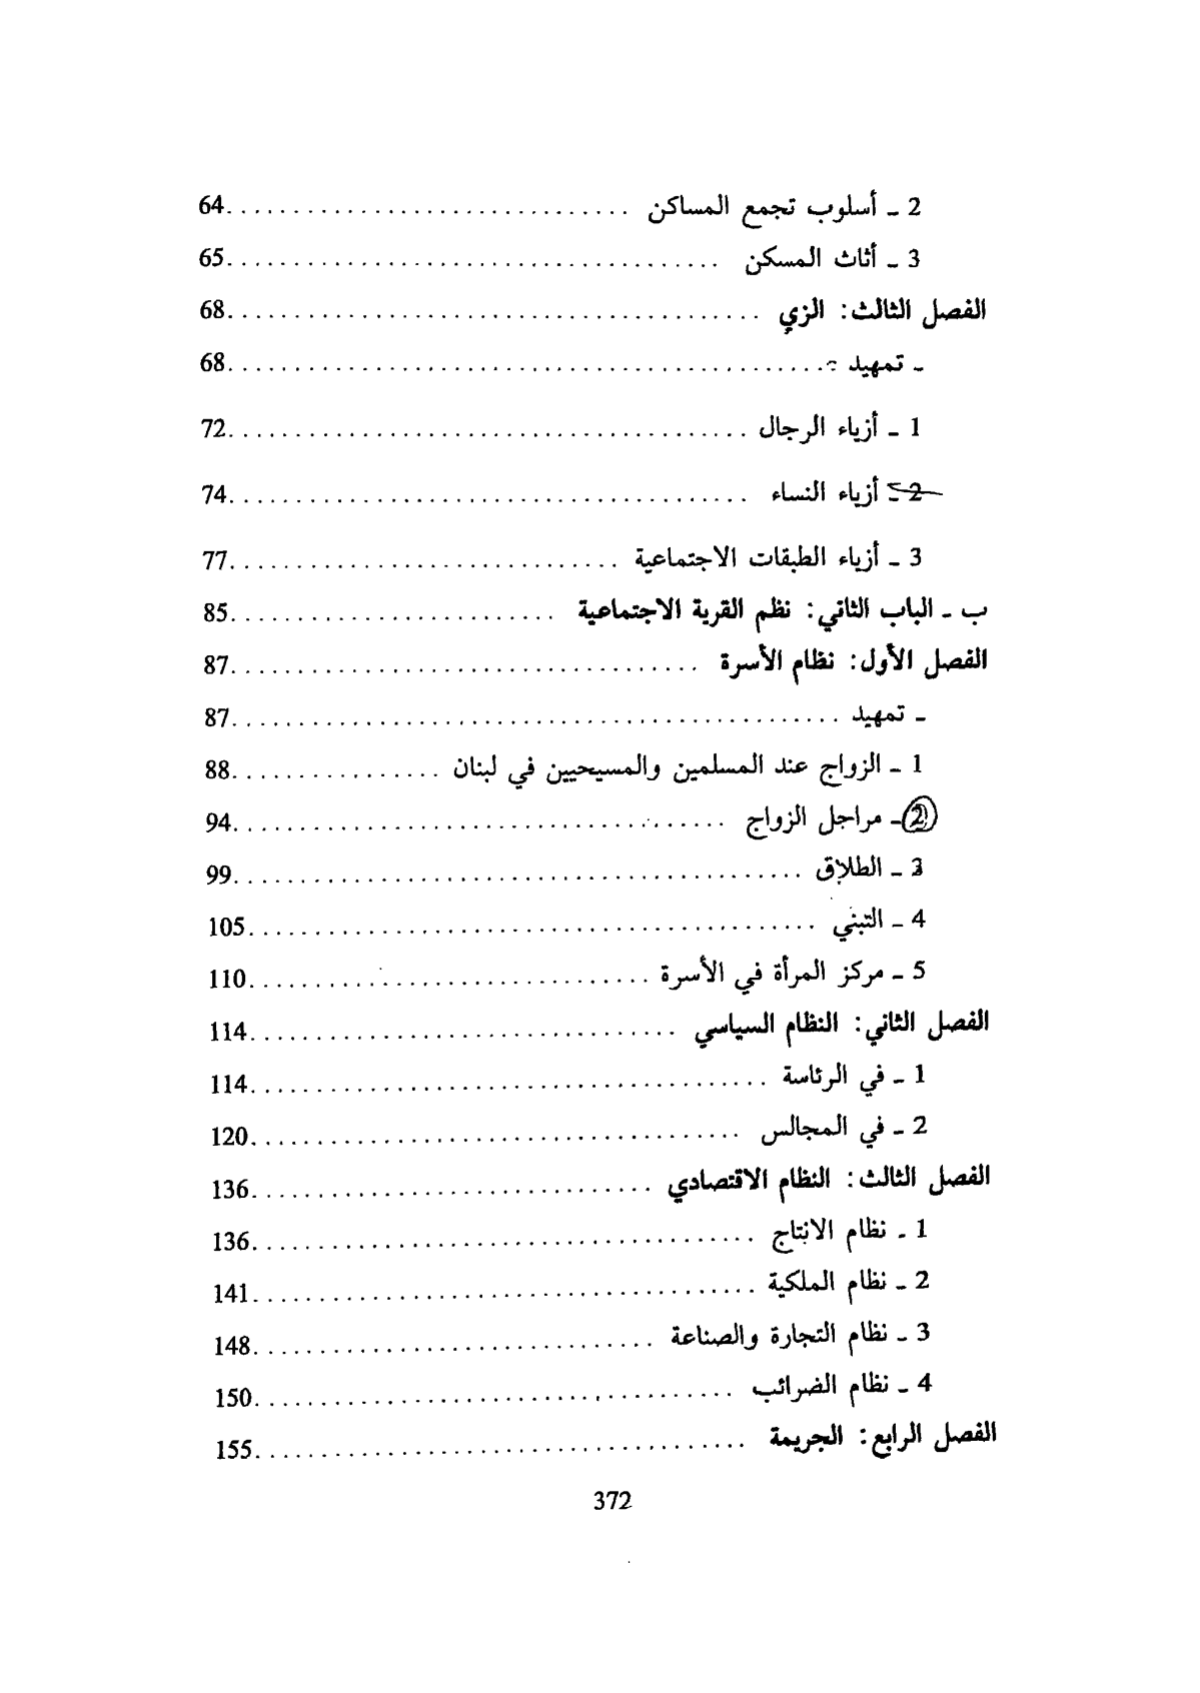 2 ـ أسلوب تجمع المساكن ............................... 64
3 ـ أثاث المسكن ..................................... 65
الفصل الثالث: الزي ......................................... 68
ـ تمهيد .............................................. 68
1 ـ أزياء الرجال ........................................ 72
2 ـ أزياء النساء ........................................ 74
3 ـ أزياء الطبقات الاجتماعية .............................. 77
ب ـ الباب الثاني: نظم القرية الاجتماعية ......................... 85
الفصل الأول: نظام الأسرة .................................... 87
ـ تمهيد .............................................. 87
1 ـ الزواج عند المسلمين والمسيحيين في لبنان ................ 88
2 ـ مراحل الزواج ...................................... 94
3 ـ الطلاق ............................................ 99
4 ـ التبني ............................................ 105
5 ـ مركز المرأة في الأسرة ............................... 110
الفصل الثاني: النظام السياسي ................................. 114
1 ـ في الرئاسة ........................................ 114
2 ـ في المجالس ...................................... 120
الفصل الثالث: النظام الاقتصادي ............................... 136
1 ـ نظام الانتاج ....................................... 136
2 ـ نظام الملكية ....................................... 141
3 ـ نظام التجارة والصناعة ............................... 148
4 ـ نظام الضرائب ..................................... 150
الفصل الرابع: الجريمة ...................................... 155
372